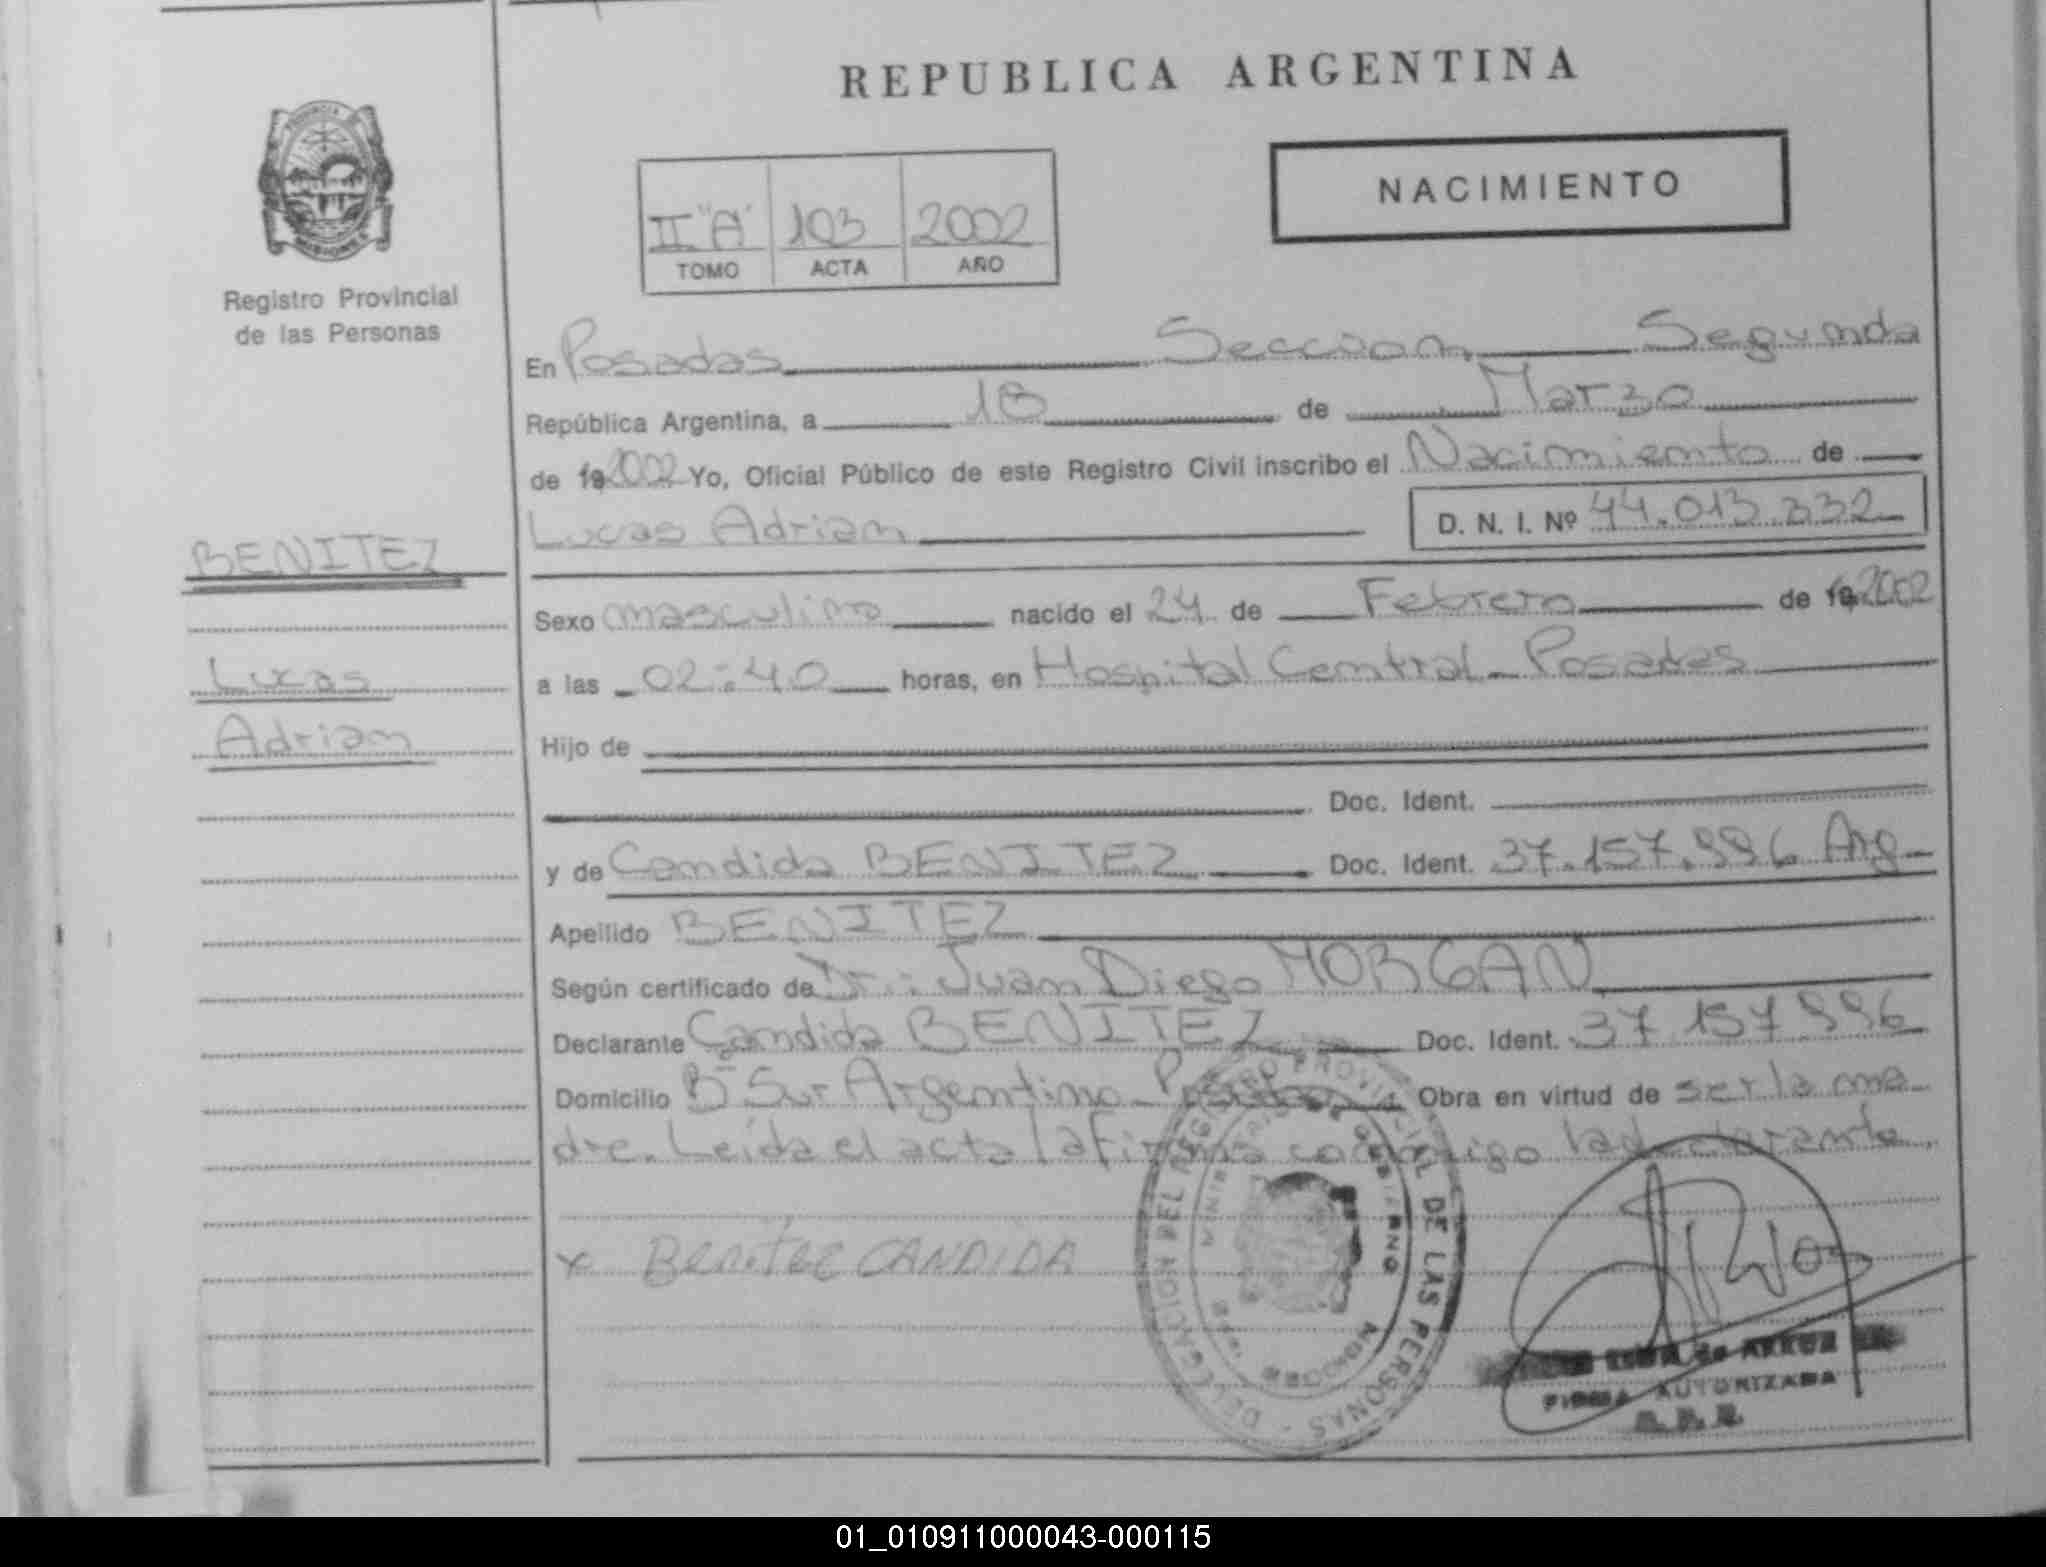 REPUBLICA ARGENTINA
NACIMIENTO
II "A" 103 2002
TOMO ACTA AÑO
PROVINCIA DE
MISIONES
Registro Provincial
de las Personas
En Posadas Seccion Segunda
República Argentina, a 18 de Marzo
de 19 2002 Yo, Oficial Público de este Registro Civil inscribo el Nacimiento de
Lucas Adrian D. N. I. Nº 44.013.332
BENITEZ
Lucas
Adrian
Sexo masculino nacido el 24 de Febrero de 19 2002
a las 02:40 horas, en Hospital Central - Posadas
Hijo de
Doc. Ident.
y de Candida BENITEZ Doc. Ident. 37.157.996 Arg
Apellido BENITEZ
Según certificado de Dr.: Juan Diego MORGAN
Declarante Candida BENITEZ Doc. Ident. 37.157.996
Domicilio Bº Sur Argentino - Posadas Obra en virtud de ser la ma
dre. Leída el acta la firma conmigo la declarante.
x Benitez CANDIDA
DELEGACION DEL REGISTRO PROVINCIAL DE LAS PERSONAS
MINISTERIO DE GOBIERNO
MISIONES
de
FIRMA AUTORIZADA
01_010911000043-000115